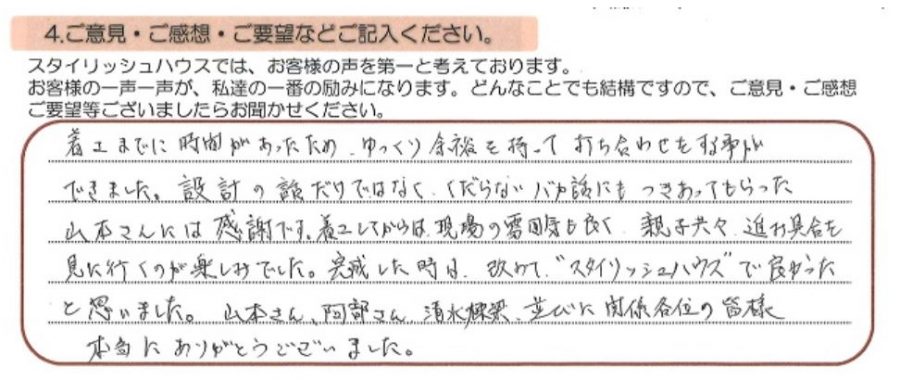 4.ご意見・ご感想・ご要望などご記入ください。
スタイリッシュハウスでは、お客様の声を第一と考えております。
お客様の一声一声が、私達の一番の励みになります。どんなことでも結構ですので、ご意見・ご感想
ご要望等ございましたらお聞かせください。
着工までに時間があったため、ゆっくり余裕を持って打ち合わせをする事が
できました。設計の話だけではなく、くだらないバカ話にもつきあってもらった
山本さんには感謝です。着工してからは、現場の雰囲気も良く、親子共々、進み具合を
見に行くのが楽しみでした。完成した時は、改めて"スタイリッシュハウス"で良かった
と思いました。山本さん、阿部さん、清水棟梁、並びに関係各位の皆様
本当にありがとうございました。